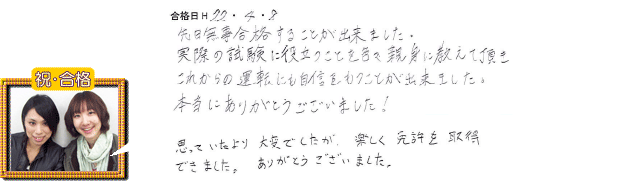 合格日 H 22・4・8
先日無事合格することが出来ました。
実際の試験に役立つことを皆親身に教えて頂き
これからの運転にも自信をもつことが出来ました。
本当にありがとうございました!
祝・合格
思っていたより大変でしたが、楽しく免許を取得
できました。ありがとうございました。